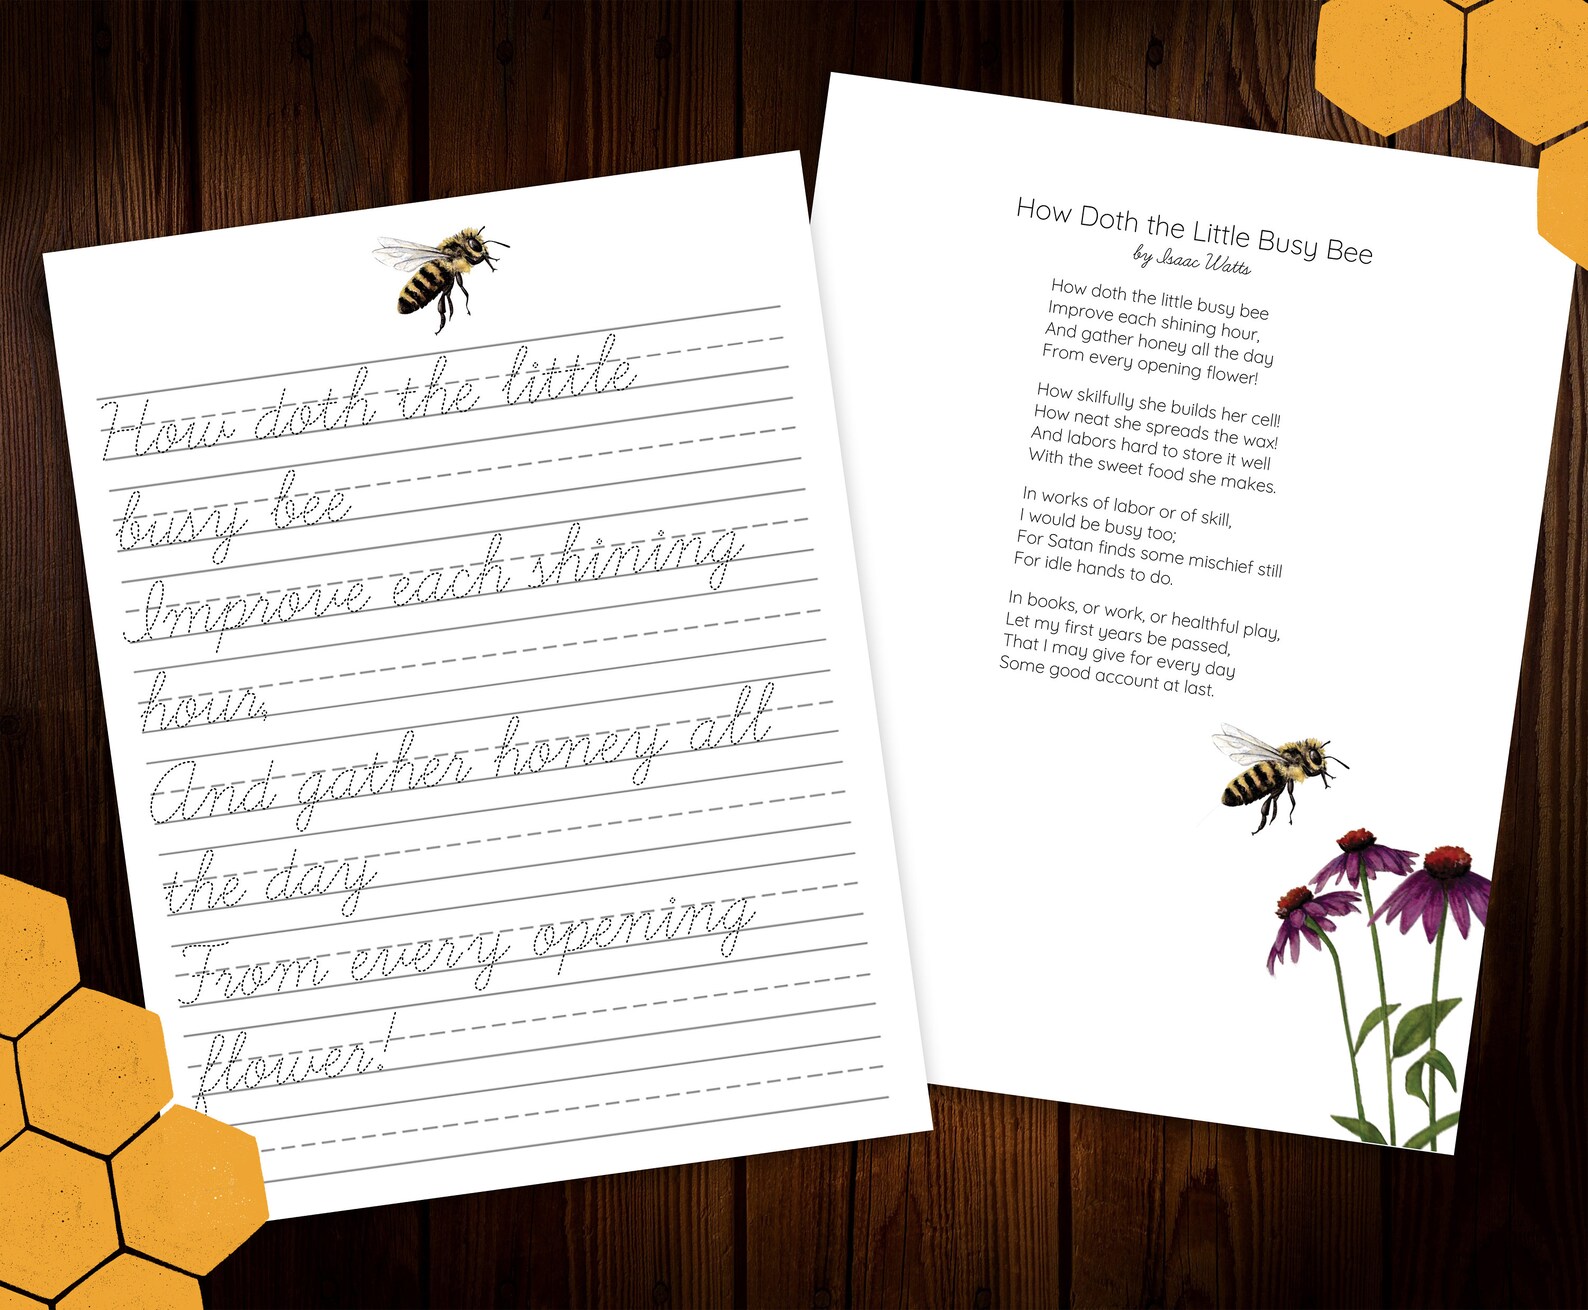 How doth the little
busy bee
Improve each shining
hour,
And gather honey all
the day
From every opening
flower!
How Doth the Little Busy Bee
by Isaac Watts
How doth the little busy bee
Improve each shining hour,
And gather honey all the day
From every opening flower!
How skilfully she builds her cell!
How neat she spreads the wax!
And labors hard to store it well
With the sweet food she makes.
In works of labor or of skill,
I would be busy too;
For Satan finds some mischief still
For idle hands to do.
In books, or work, or healthful play,
Let my first years be passed,
That I may give for every day
Some good account at last.